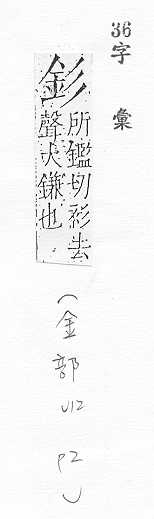 36字彙
釤
所鑑切衫去
聲大鎌也
(金部 U12 P2)